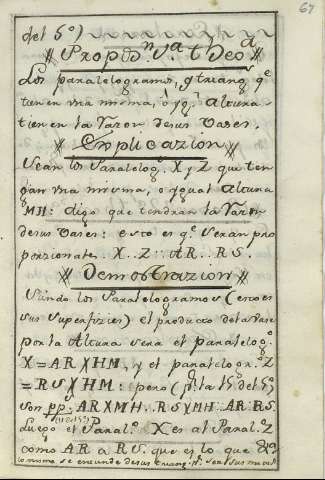 67
del 5º)
Propoōn. Vª. tª Deoª
Los paralelogramos, y triang. qe
tienen una misma, ó ygl. altura
tienen la Razon de sus Vases.
Explicazion
Sean los Paralelog. X, y Z que ten
gan una misma, o ygual Altura
MH: digo que tendran la Razon
de sus Vases: esto es qe. seran pro
porzionales X..Z::AR..RS.
Demostrazion
Siendo los Paralelogramos (esto es
sus superfizies) el producto de la Vase
por la Altura sera el paralelogº.
X = AR X HM, y el paralelogr. Z
= RS X HM: pero (pr. la 15. del 5º)
son pps. AR X MH..RS X MH::AR..RS.
Luego el Paralº. X es al Paralº. Z
como AR a RS. que es lo que
lo mismo se entiende de sus triang. pr. ser sus mitad